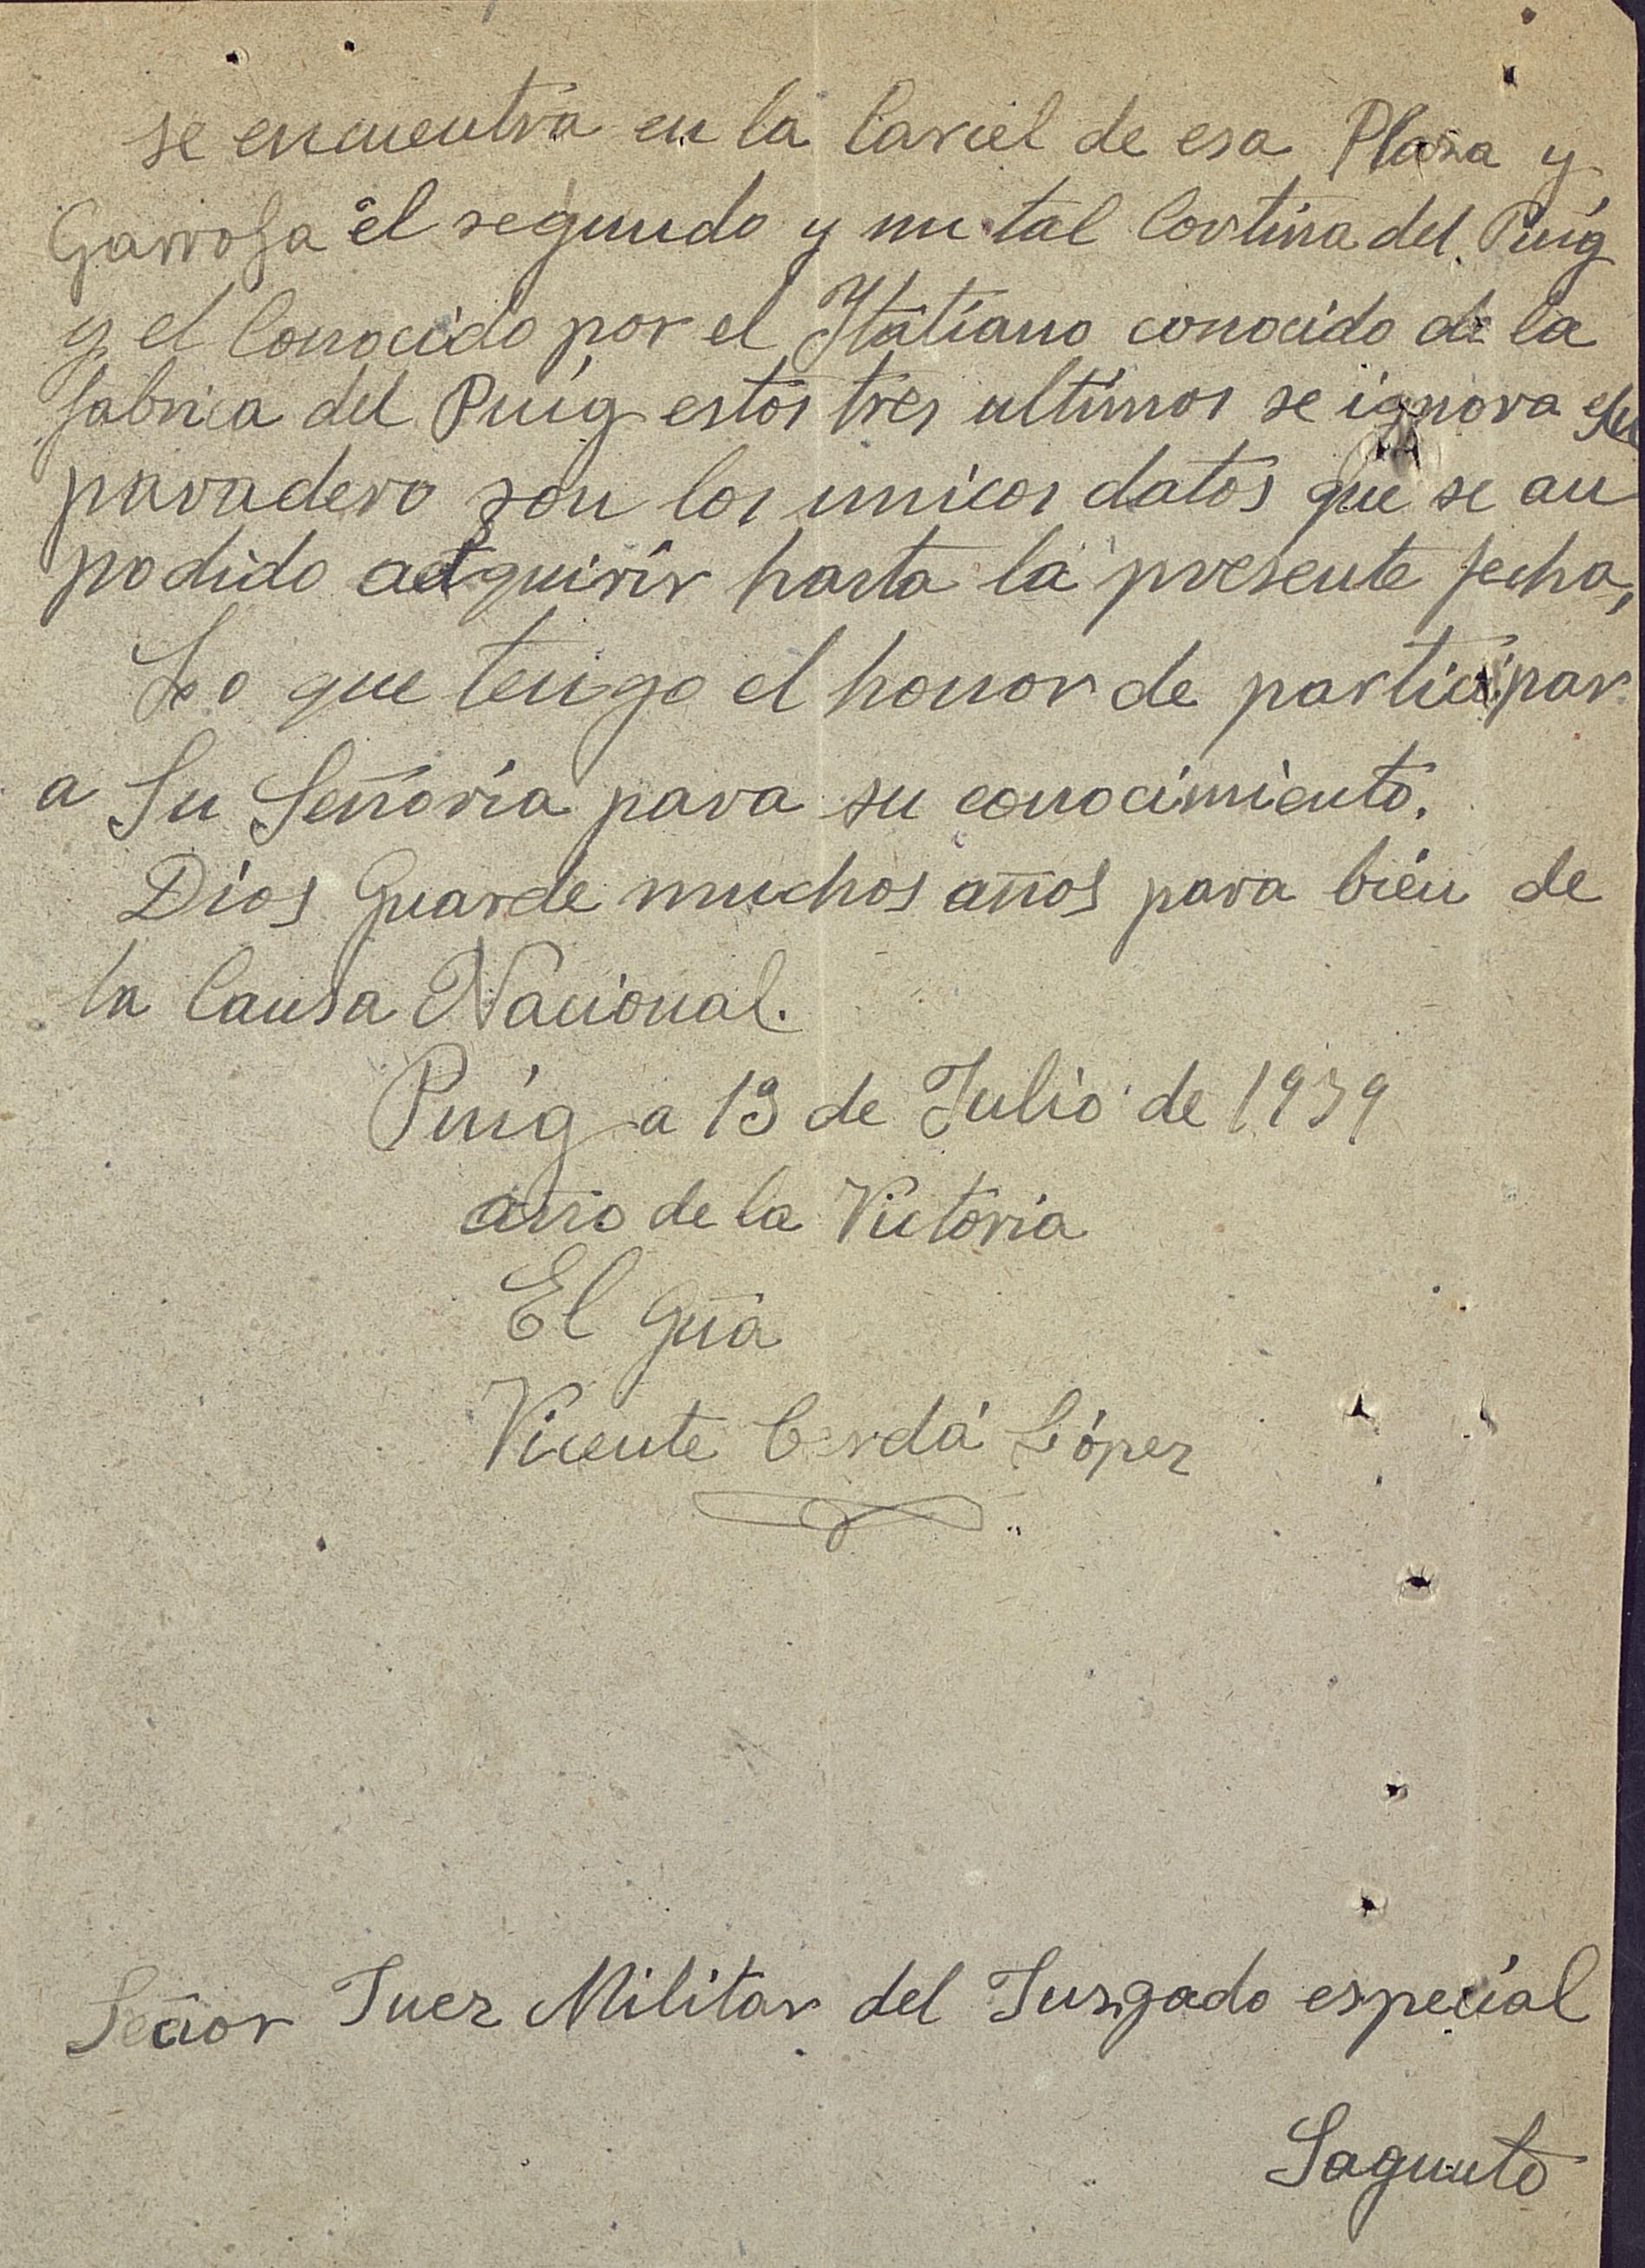 se encuentra en la Carcel de esa Plaza y
Garrofa el segundo y un tal Cortina del Puig
y el Conocido por el Ytatiano conocido de la
fabrica del Puig estos tres ultimos se ignora su
paradero son los unicos datos que se an
podido adquirir hasta la presente fecha,
Lo que tengo el honor de participar
a Su Señoria para su conocimiento.
Dios Guarde muchos años para bién de
la Causa Nacional.
Puig a 13 de Julio de 1939
año de la Victoria
El Guia
Vicente Cerdá López
Señor Juez Militar del Juzgado especial
Sagunto